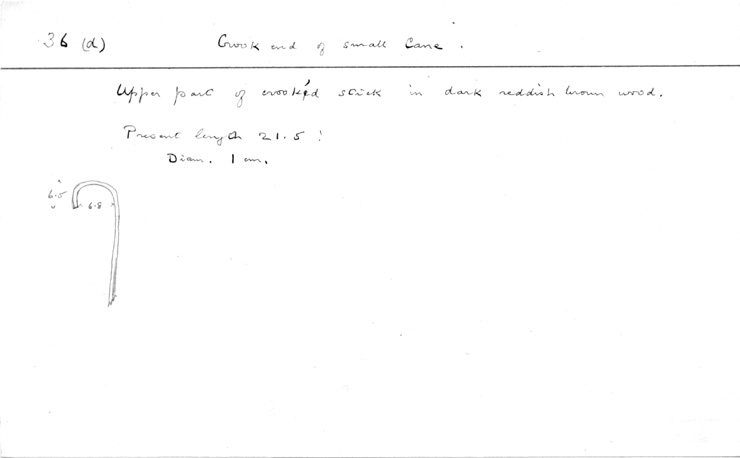 36 (d) Crook end of small Cane.
Upper part of crooked stick in dark reddish brown wood.
Present length 21.5 :
Diam. 1 cm.
6.5
6.8